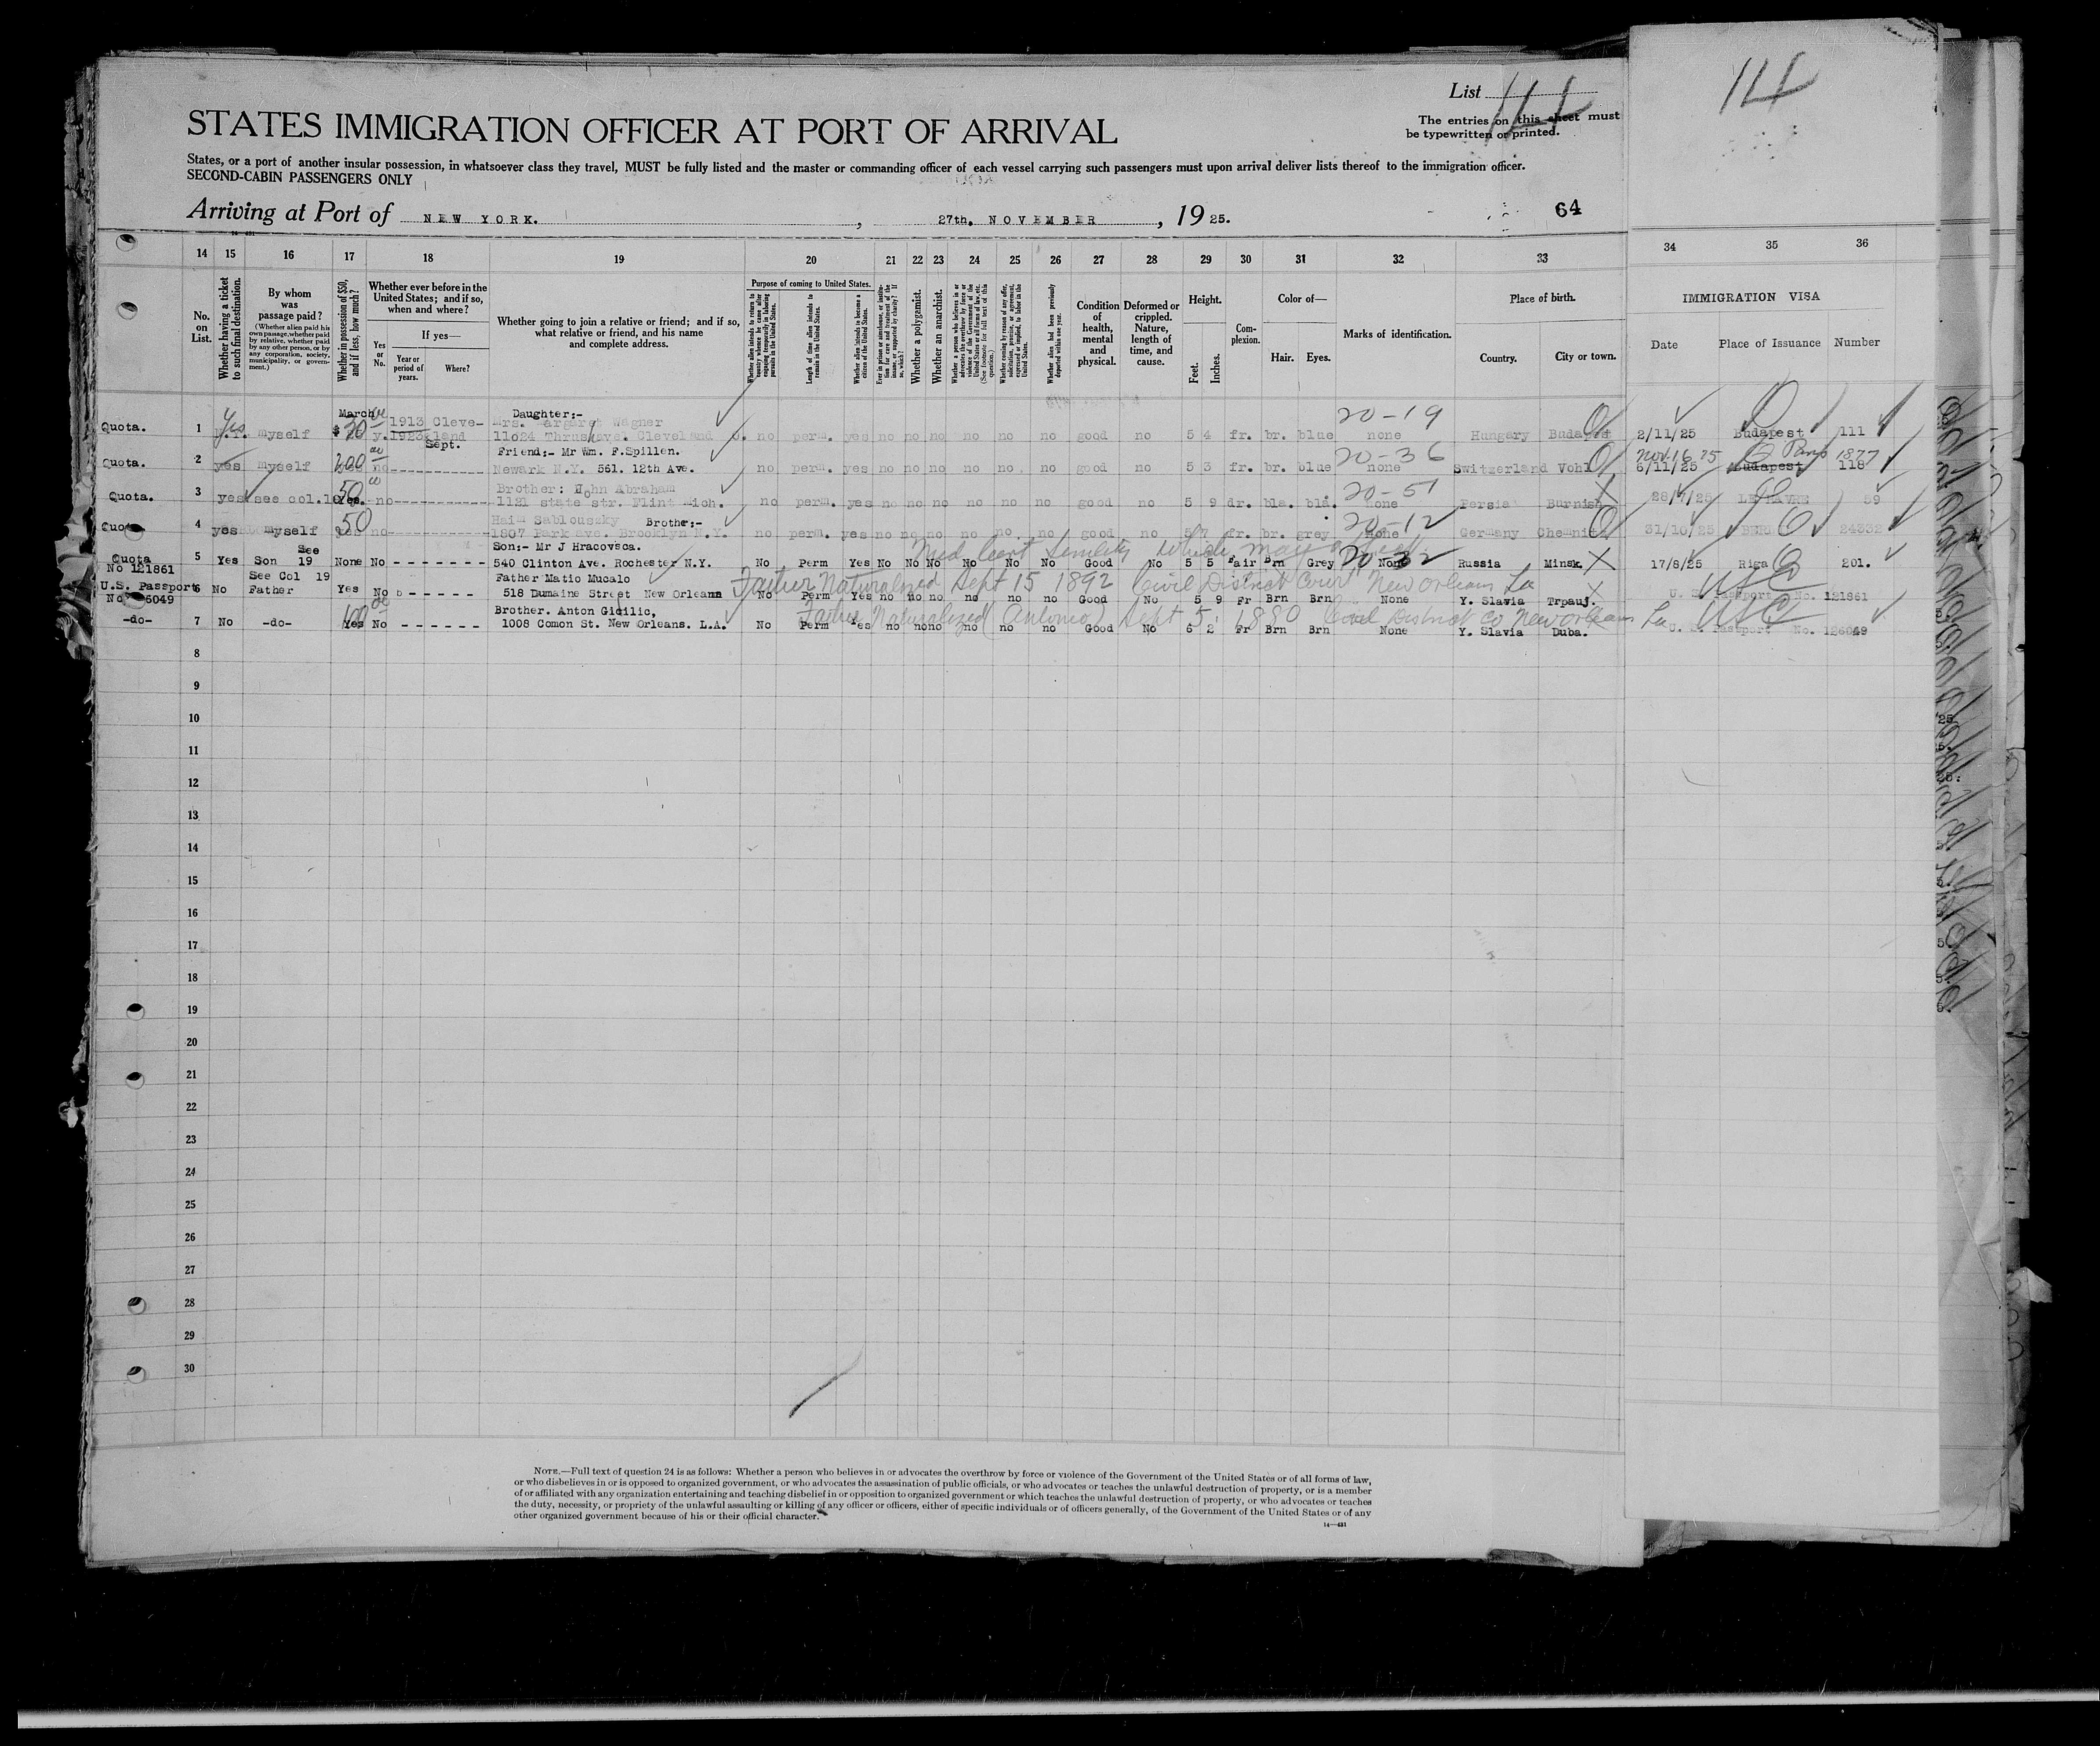 List 14
14
The entries on this sheet must
be typewritten or printed.
STATES IMMIGRATION OFFICER AT PORT OF ARRIVAL
States, or a port of another insular possession, in whatsoever class they travel, MUST be fully listed and the master or commanding officer of each vessel carrying such passengers must upon arrival deliver lists thereof to the immigration officer.
SECOND-CABIN PASSENGERS ONLY
Arriving at Port of NEW YORK. , 27th. NOVEMBER , 19 25.
64
14 15 16 17 18 19 20 21 22 23 24 25 26 27 28 29 30 31 32 33 34 35 36
No. on List.
Whether having a ticket to such final destination.
By whom was passage paid?
(Whether alien paid his own passage, whether paid by relative, whether paid by any other person, or by any corporation, society, municipality, or government.)
Whether in possession of $50, and if less, how much?
Whether ever before in the United States; and if so, when and where?
If yes—
Yes or No.
Year or period of years.
Where?
Whether going to join a relative or friend; and if so, what relative or friend, and his name and complete address.
Purpose of coming to United States.
Length of time alien intends to remain in the United States.
Whether alien intends to become a citizen of the United States.
Whether a polygamist.
Whether an anarchist.
Condition of health, mental and physical.
Deformed or crippled. Nature, length of time, and cause.
Height.
Feet.
Inches.
Complexion.
Color of—
Hair.
Eyes.
Marks of identification.
Place of birth.
Country.
City or town.
IMMIGRATION VISA
Date
Place of Issuance
Number
March Daughter:- 20-19
Quota. 1 Yes myself $ 30 y. 1913 1923 Cleveland Mrs. Margaret Wagner
11024 Thrush ave. Cleveland O. no perm. yes no no no no no no good no 5 4 fr. br. blue none Hungary Budapest 2/11/25 Budapest 111
Sept. Friend:- Mr Wm. F.Spillen. 20-36 Nov. 16 25 Paris 1877
Quota. 2 yes myself 600 no Newark N.Y. 561. 12th Ave. no perm. yes no no no no no no good no 5 3 fr. br. blue none Switzerland Vohl 6/11/25 Budapest 118
Brother: John Abraham 20-51
Quota. 3 yes see col.19 yes. 50 no 1121 state str. Flint Mich. no perm. yes no no no no no no good no 5 9 dr. bla. bla. none Persia Burnish 28/7/25 59
Haim Sablouszky Brother:- 20-12
Quota 4 yes myself yes 50 no 1807 Park ave. Brooklyn N.Y. no perm. yes no no no no no no good no 5 7 fr. br. grey none Germany Chemni 31/10/25 24332
Son:- Mr J Hracovsca. Med Cert Senility which may affect
Quota 5 Yes Son See 19 None No 540 Clinton Ave. Rochester N.Y. No Perm Yes No No No No No No Good No 5 5 Fair Brn Grey None 20-32 Russia Minsk. 17/8/25 Riga 201.
No 121861 See Col 19 Father Matio Mucalo Father Naturalized Sept 15 1892 Civil District Court New Orleans La USC
U.S. Passport 6 No Father Yes No 518 Dumaine Street New Orleans No Perm Yes no no no no no no Good No 5 9 Fr Brn Brn None Y. Slavia Trpauj. U. S. Passport No. 121861
No 126049 Brother. Anton Gidilio, Father Naturalized (Antonio) Sept 5, 1880 Civil District Co New Orleans La USC
-do- 7 No -do- Yes 100 No 1008 Comon St. New Orleans. L.A. No Perm Yes no no no no no no Good No 6 2 Fr Brn Brn None Y. Slavia Duba. U. S. Passport No. 126049
8
9
10
11
12
13
14
15
16
17
18
19
20
21
22
23
24
25
26
27
28
29
30
NOTE.—Full text of question 24 is as follows: Whether a person who believes in or advocates the overthrow by force or violence of the Government of the United States or of all forms of law,
or who disbelieves in or is opposed to organized government, or who advocates the assassination of public officials, or who advocates or teaches the unlawful destruction of property, or is a member
of or affiliated with any organization entertaining and teaching disbelief in or opposition to organized government or which teaches the unlawful destruction of property, or who advocates or teaches
the duty, necessity, or propriety of the unlawful assaulting or killing of any officer or officers, either of specific individuals or of officers generally, of the Government of the United States or of any
other organized government because of his or their official character.
14—431